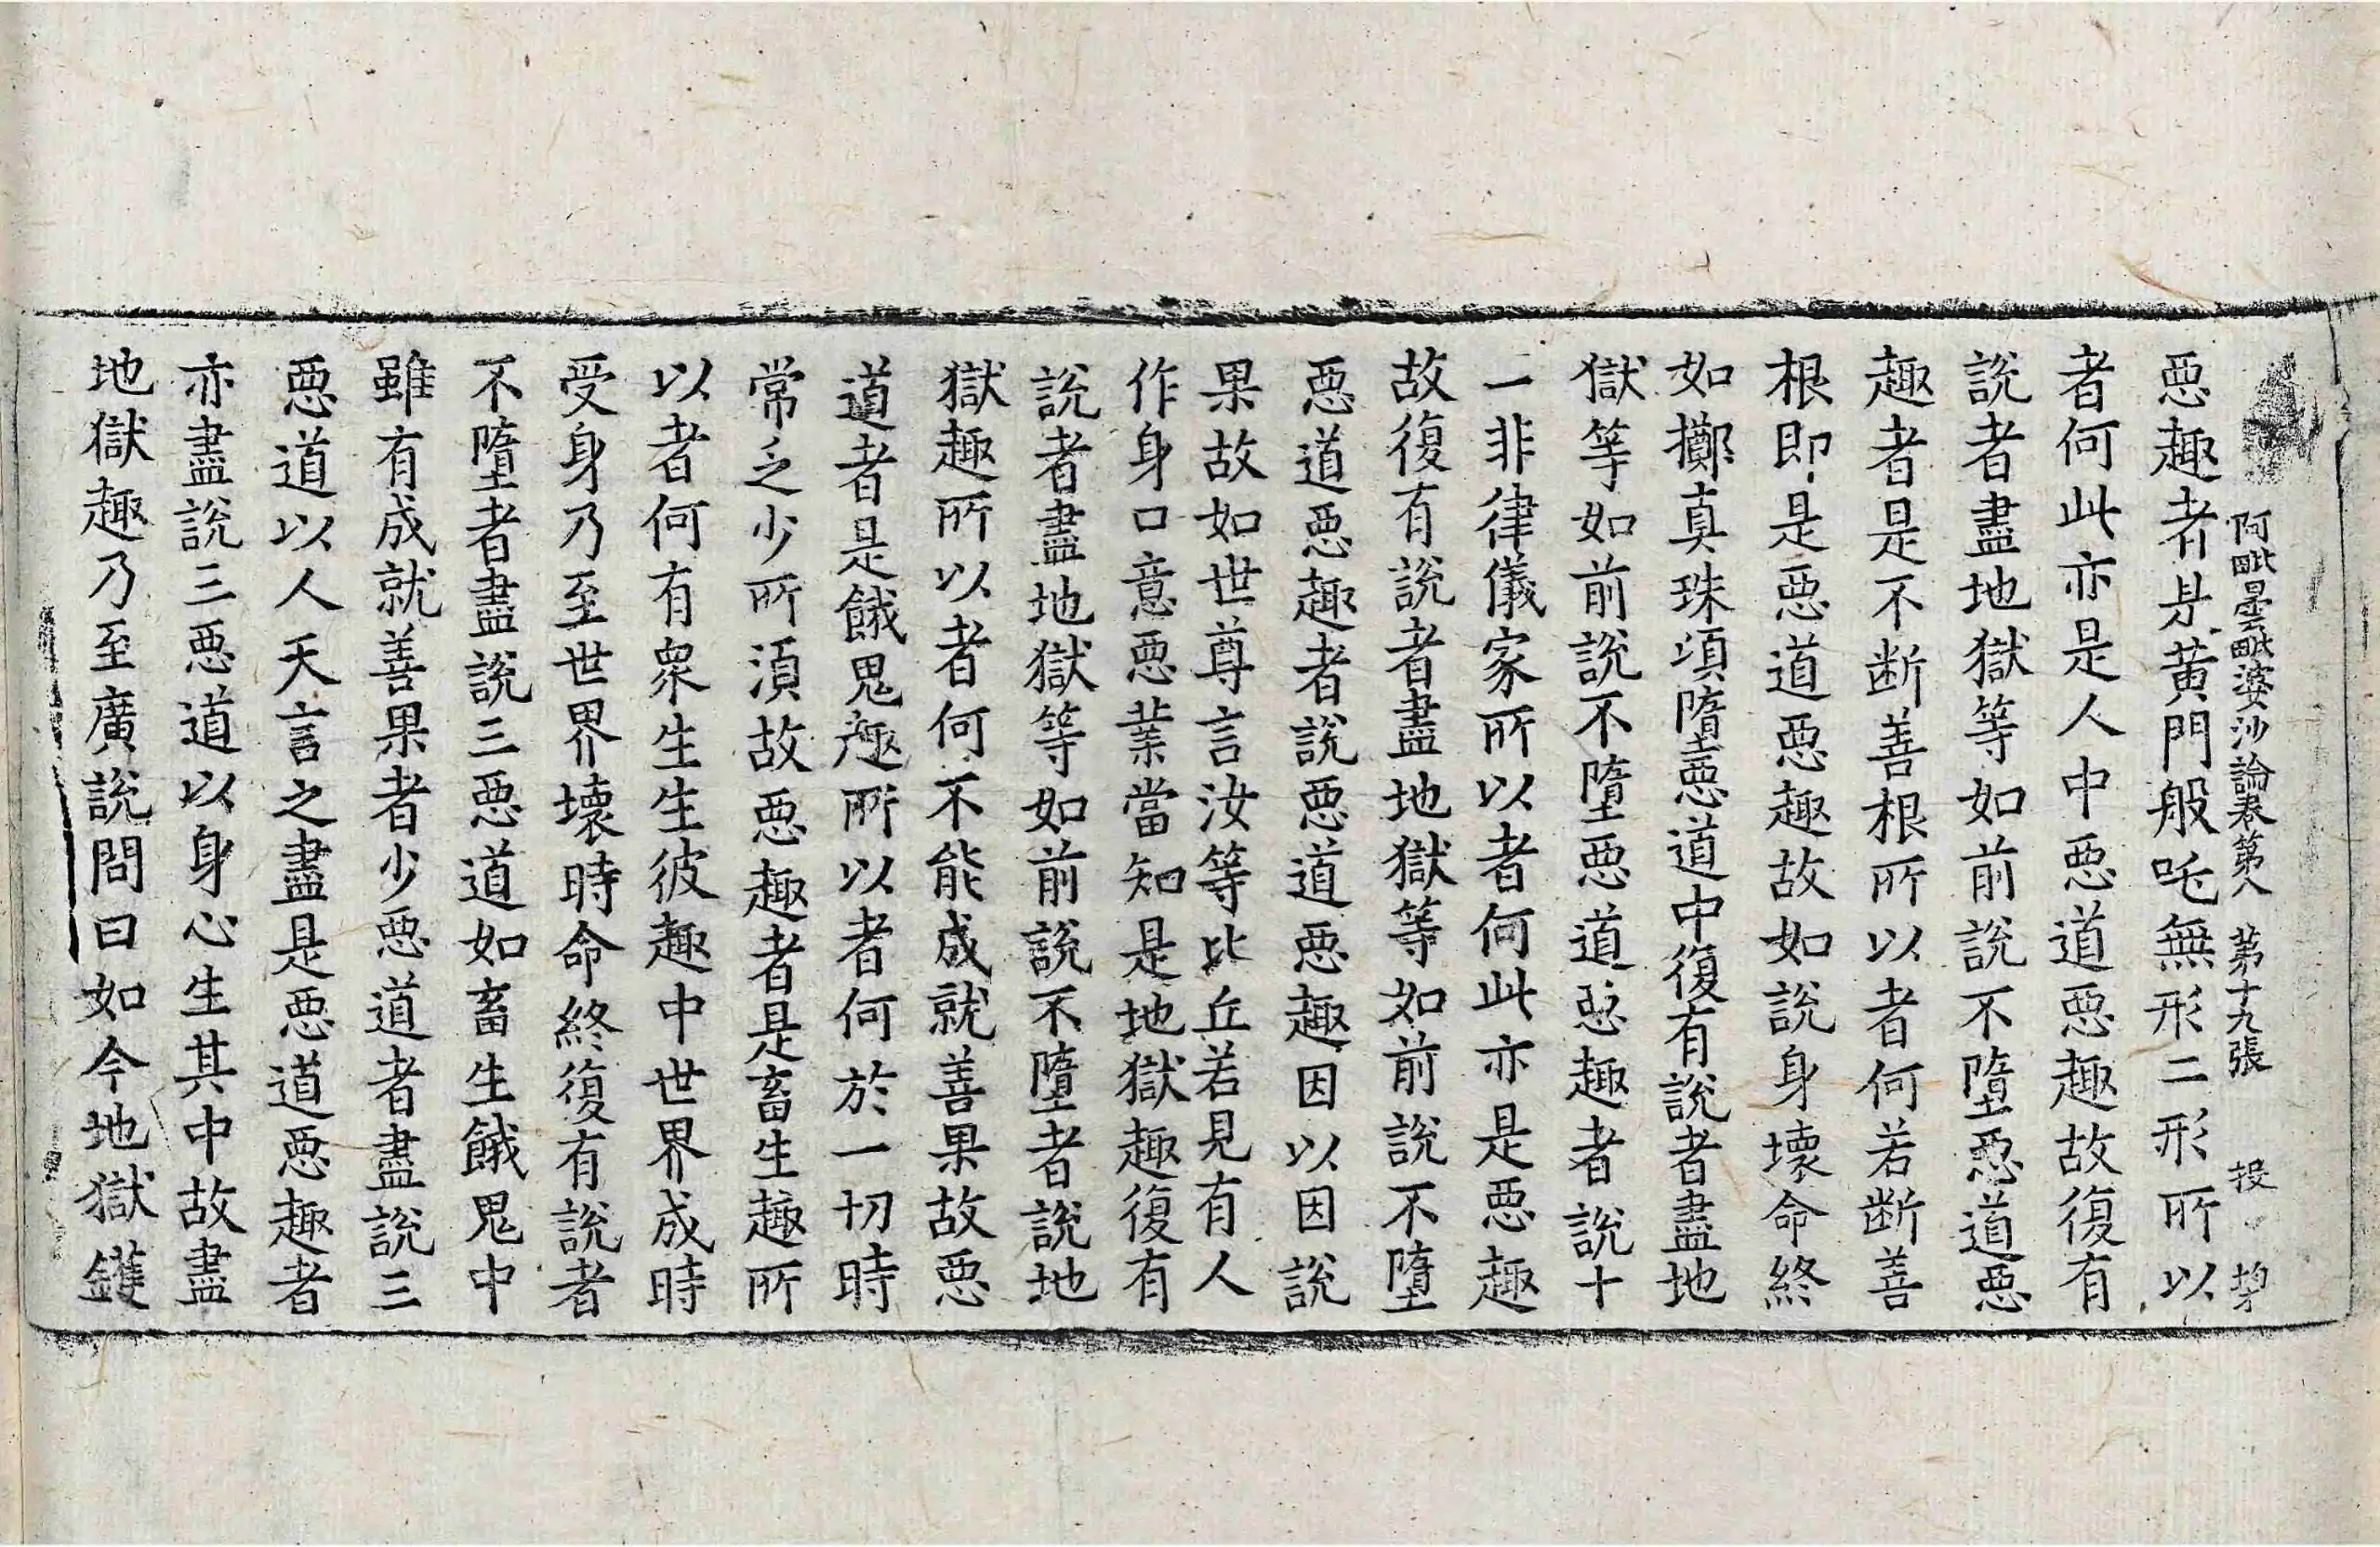 阿毗曇毗婆沙論卷第八　第十九張　投
惡趣者是黃門般吒無形二形所以
者何此亦是人中惡道惡趣故復有
說者盡地獄等如前說不墮惡道惡
趣者是不断善根所以者何若断善
根即是惡道惡趣故如說身壞命終
如擲真珠項墮惡道中復有說者盡地
獄等如前說不墮惡道惡趣者說十
一非律儀家所以者何此亦是惡趣
故復有說者盡地獄等如前說不墮
惡道惡趣者說惡道惡趣因以因說
果故如世尊言汝等比丘若見有人
作身口意惡業當知是地獄趣復有
說者盡地獄等如前說不墮者說地
獄趣所以者何不能成就善果故惡
道者是餓鬼趣所以者何於一切時
常乏少所須故惡趣者是畜生趣所
以者何有衆生生彼趣中世界成時
受身乃至世界壞時命終復有說者
不墮者盡說三惡道如畜生餓鬼中
雖有成就善果者少惡道者盡說三
惡道以人天言之盡是惡道惡趣者
亦盡說三惡道以身心生其中故盡
地獄趣乃至廣說問曰如今地獄鑊